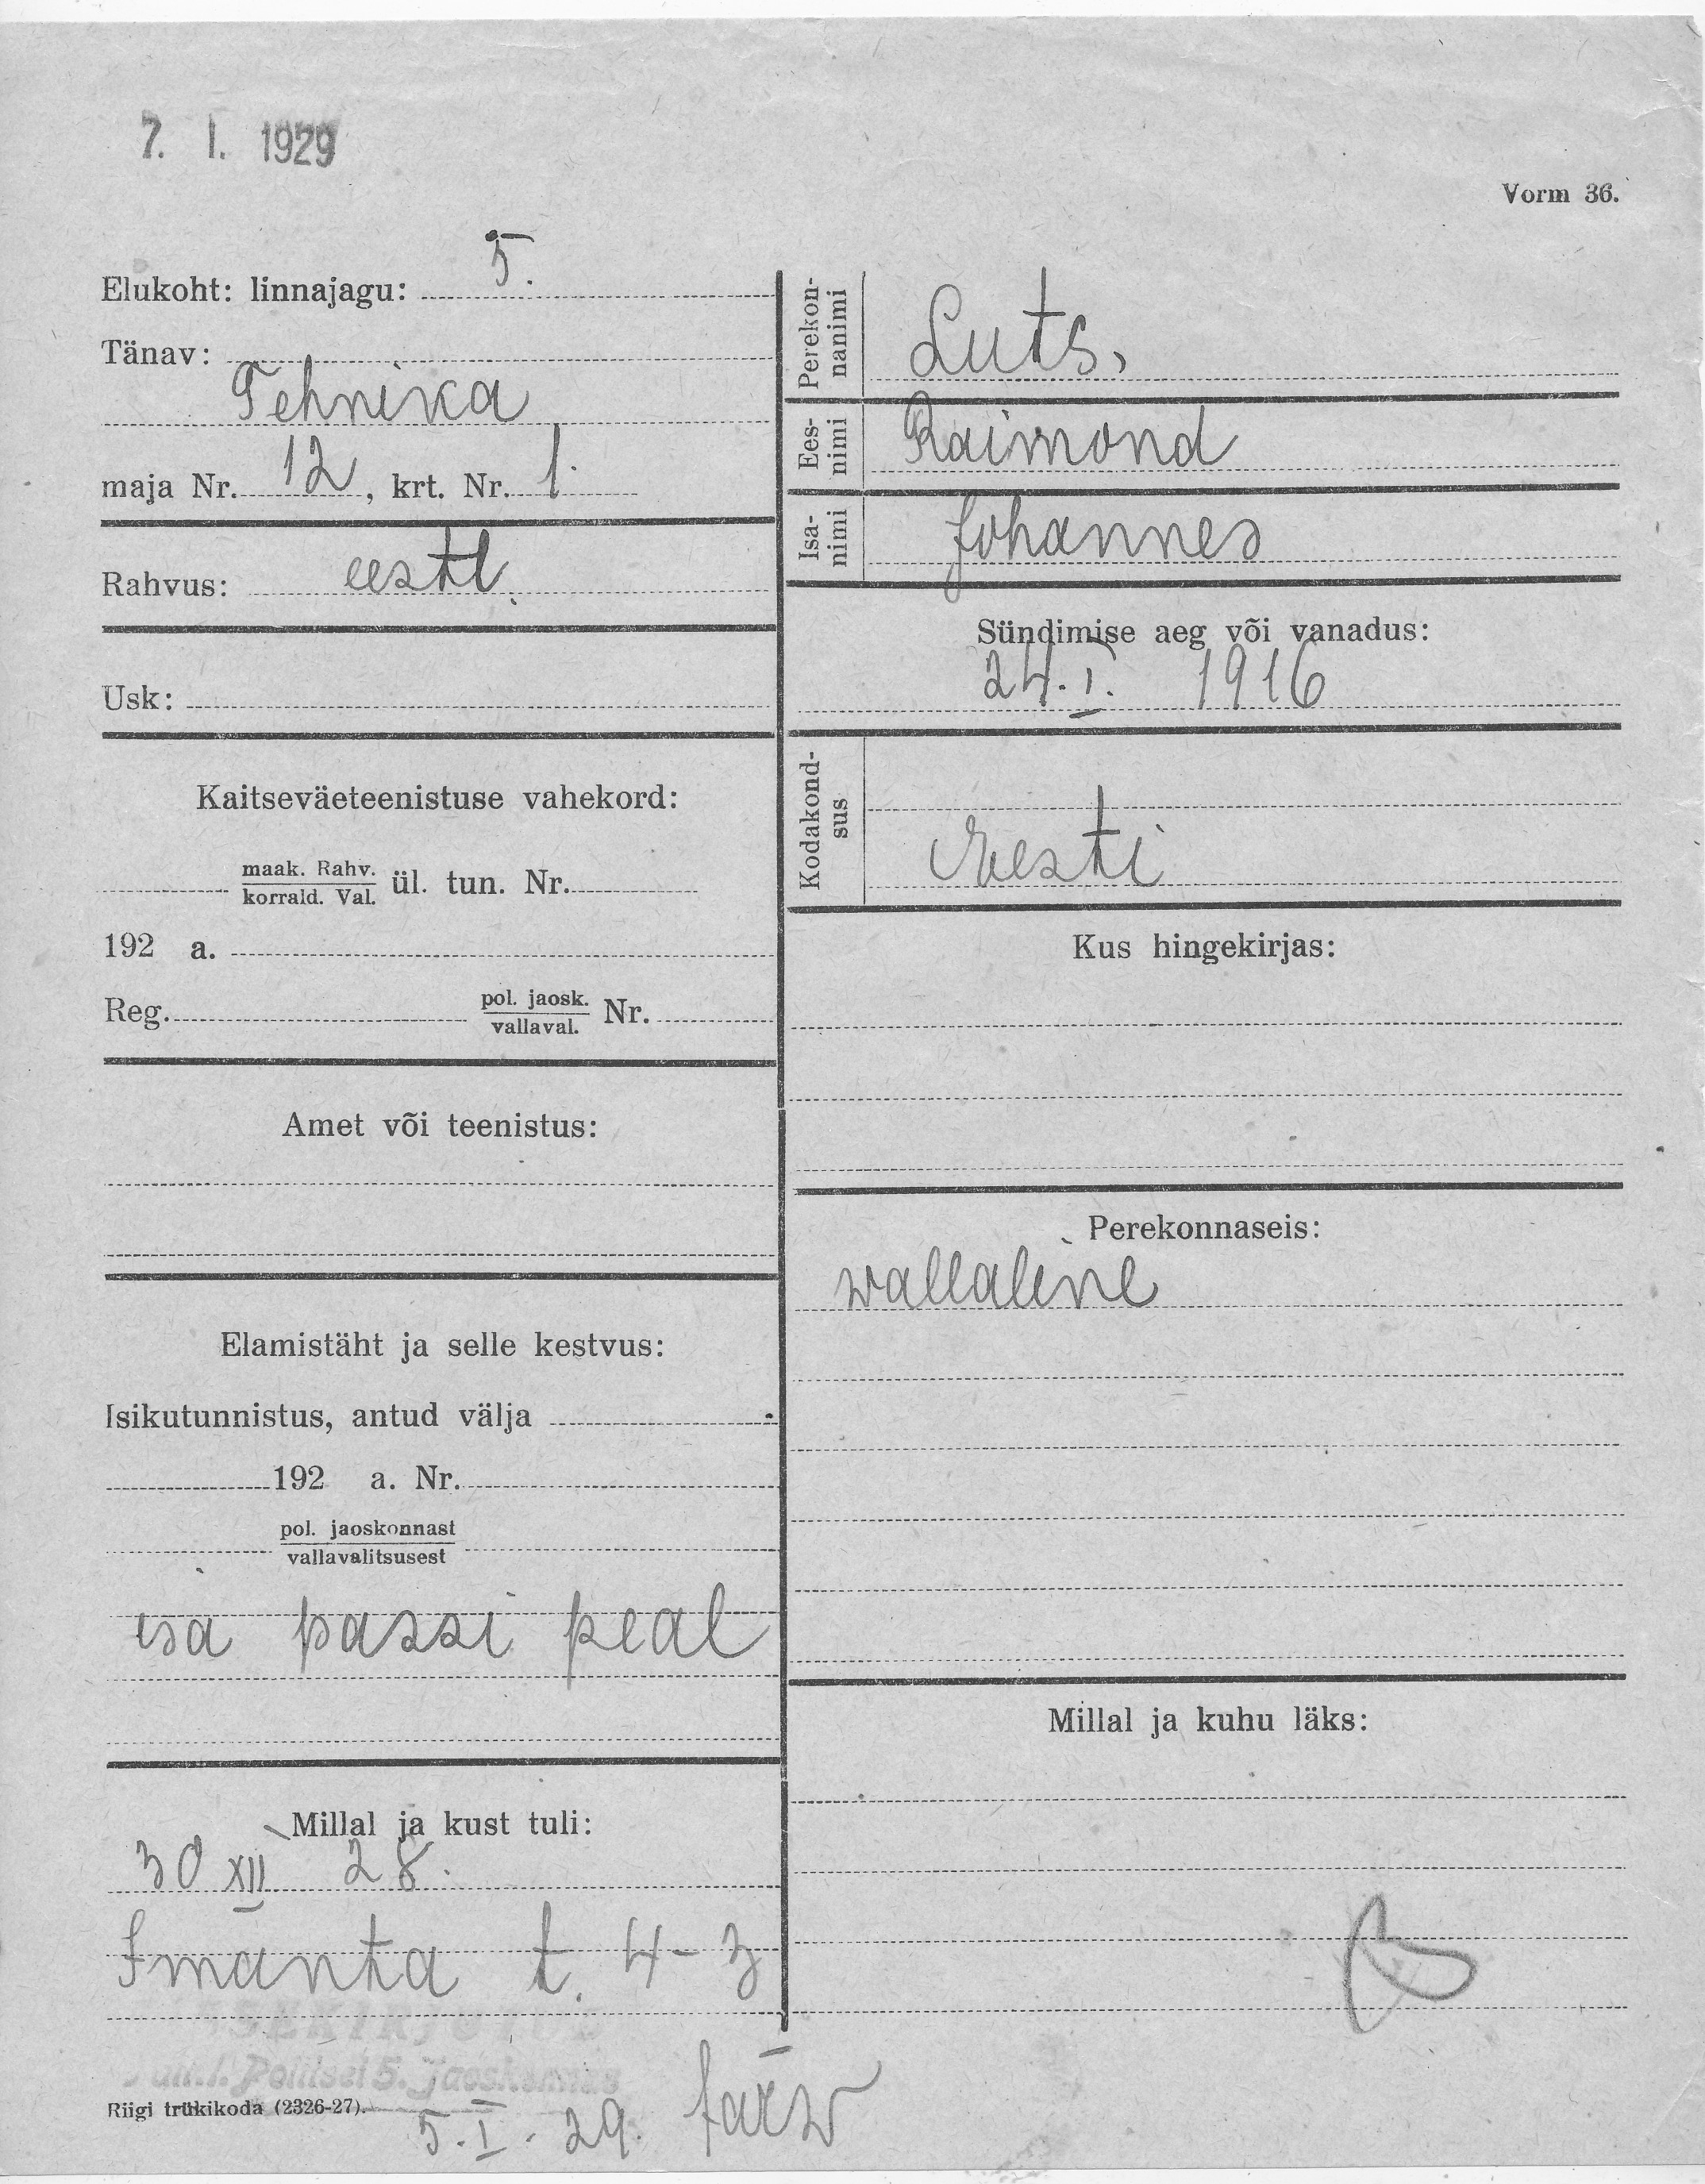 7. I. 1929
Vorm 36.
Elukoht: linnajagu: 5.
Tänav:
Tehnika
maja Nr. 12, krt. Nr. 1.
Rahvus: eestl.
Usk:
Kaitseväeteenistuse vahekord:
maak. Rahv.
korrald. Val. ül. tun. Nr.
192 a.
Reg. pol. jaosk.
vallaval. Nr.
Amet või teenistus:
Elamistäht ja selle kestvus:
Isikutunnistus, antud välja
192 a. Nr.
pol. jaoskonnast
vallavalitsusest
isa passi peal
Millal ja kust tuli:
30 XII 28.
Imanta t. 4-3
Perekon-
nanimi Luts,
Ees-
nimi Raimond
Isa-
nimi Johannes
Sündimise aeg või vanadus:
24. I. 1916
Kodakond-
sus Eesti
Kus hingekirjas:
Perekonnaseis:
wallaline
Millal ja kuhu läks:
Politsei 5. Jaoskonnas
Riigi trükikoda (2326-27).
5. I. 29.